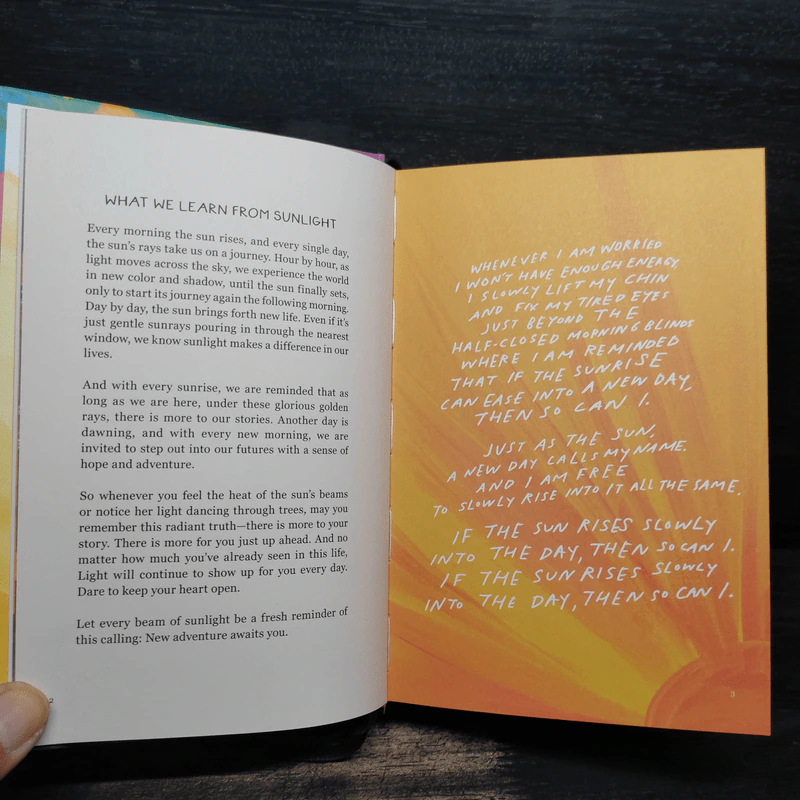 WHAT WE LEARN FROM SUNLIGHT
Every morning the sun rises, and every single day,
the sun's rays take us on a journey. Hour by hour, as
light moves across the sky, we experience the world
in new color and shadow, until the sun finally sets,
only to start its journey again the following morning.
Day by day, the sun brings forth new life. Even if it's
just gentle sunrays pouring in through the nearest
window, we know sunlight makes a difference in our
lives.
And with every sunrise, we are reminded that as
long as we are here, under these glorious golden
rays, there is more to our stories. Another day is
dawning, and with every new morning, we are
invited to step out into our futures with a sense of
hope and adventure.
So whenever you feel the heat of the sun's beams
or notice her light dancing through trees, may you
remember this radiant truth—there is more to your
story. There is more for you just up ahead. And no
matter how much you've already seen in this life,
Light will continue to show up for you every day.
Dare to keep your heart open.
Let every beam of sunlight be a fresh reminder of
this calling: New adventure awaits you.
2
WHENEVER I AM WORRIED
I WON'T HAVE ENOUGH ENERGY,
I SLOWLY LIFT MY CHIN
AND FIX MY TIRED EYES
JUST BEYOND THE
HALF-CLOSED MORNING BLINDS
WHERE I AM REMINDED
THAT IF THE SUNRISE
CAN EASE INTO A NEW DAY,
THEN SO CAN I.
JUST AS THE SUN,
A NEW DAY CALLS MY NAME.
AND I AM FREE
TO SLOWLY RISE INTO IT ALL THE SAME.
IF THE SUN RISES SLOWLY
INTO THE DAY, THEN SO CAN I.
IF THE SUN RISES SLOWLY
INTO THE DAY, THEN SO CAN I.
3